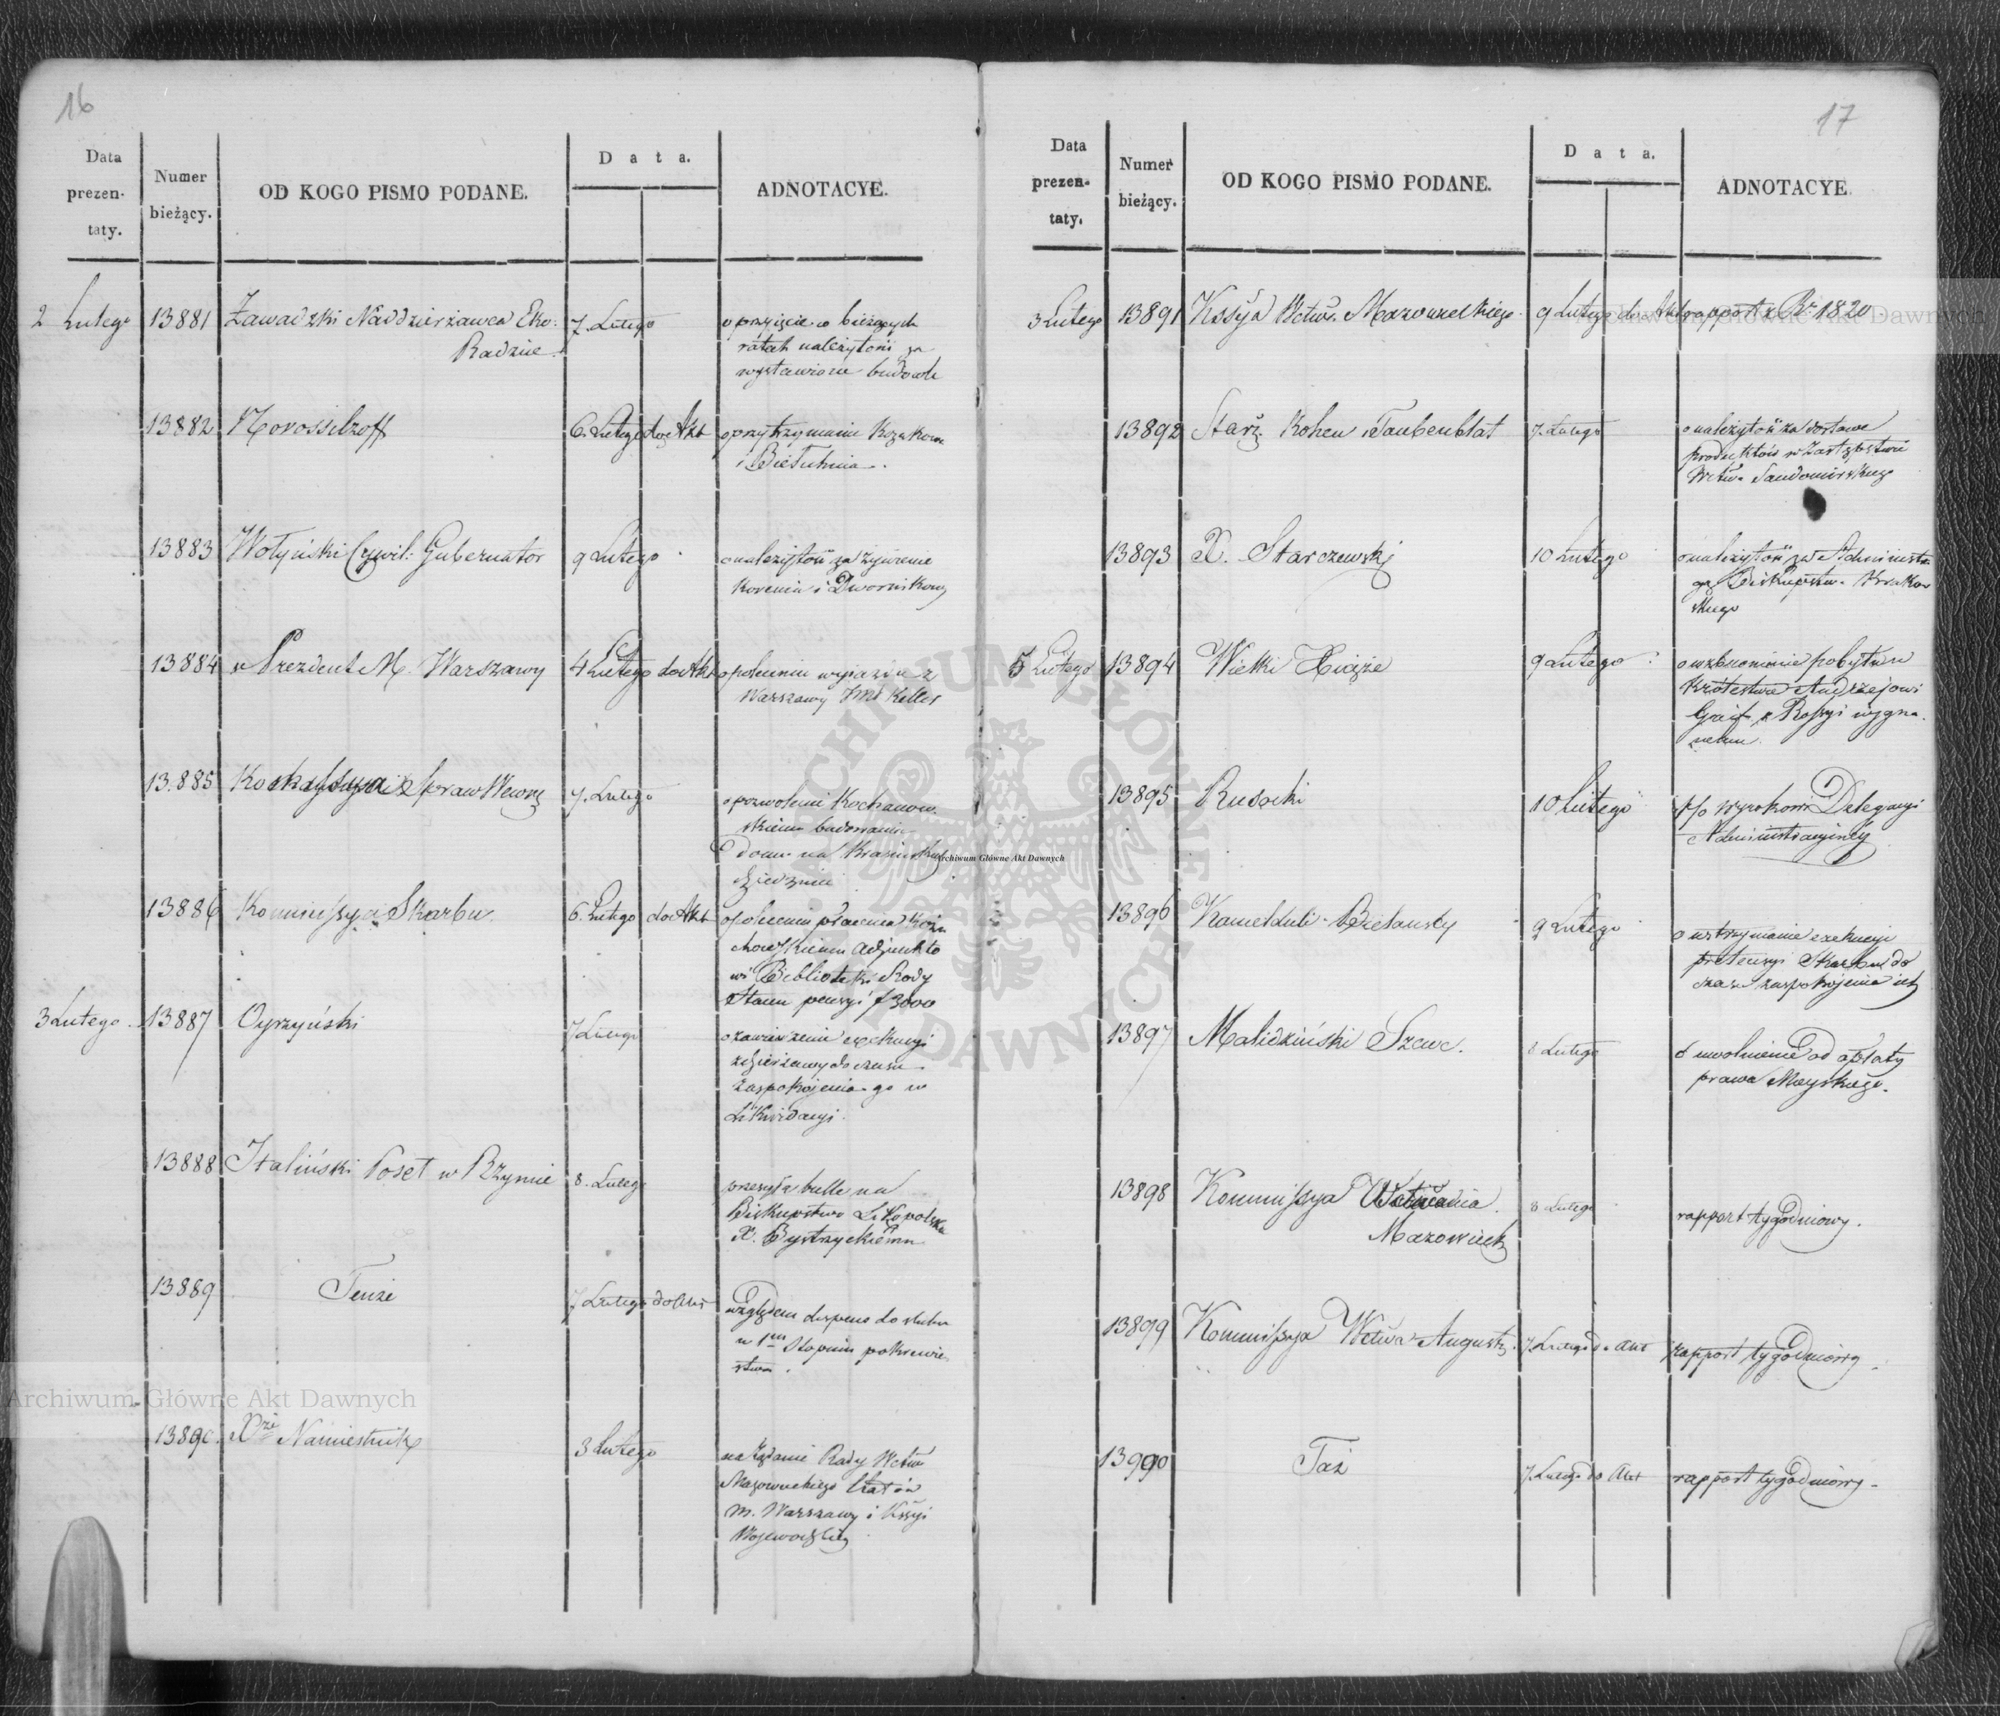 16
Data
prezen-
taty.
Numer
bieżący.
OD KOGO PISMO PODANE.
Data.
ADNOTACYE.
2 Lutego 13881 Zawadzki Naddzierżawca Eko: 7. Lutego o przyjęcie w bieżących
Radzie. ratach należytości za
wystawione budowle
13882 Novossilzoff 6. Lutego do Akt o przytrzymanie
i
13883 Wołyński Cywil: Gubernator 9 Lutego o należytość za żywienie
i
13884 Prezdent M. Warszawy 4 Lutego do Akt o poleceniu wyjazdu z
Warszawy Keller
13.885 Spraw Wewnę 7. Lutego o pozwoleni Kochanow
skiemu budowania
domu na
dziedzińcu
13886 Kommissya Skarbu 6. Lutego do Akt o poleceniu płacenia
Adjunkto
wi Biblioteki Rady
Stanu pensyi f 3000
3 Lutego. 13887 Cyrzyński 7 Lutego o zawieszenie exekucyi
z dzierżawy do czasu
zaspokojenia go w
Likwidacyi.
13888 Italiński Poseł w Rzymie 8. Lutego przesyła bulle na
Biskupstwo
X. Bystrzyckiemu
13889 Tenże 7 Lutego do Akt względem dispens do ślubu
w 1m Stopniu pokrewień
stwa.
13890. Xże Namiestnik 3 Lutego na żądanie Rady Wctwa
Mazowieckiego
m. Warszawy i Kssyi
17
Data
prezen-
taty.
Numer
bieżący.
OD KOGO PISMO PODANE.
Data.
ADNOTACYE.
3 Lutego 13891 Kssya Wctwa Mazowieckiego 9 Lutego do Akt rapport z R. 1820.
13892 Starz. Kohen i Taubenblat 7. Lutego o należytość za dostawę
produktów w
Wctwa Sandomirskiego
13893 X. Starczewski 10 Lutego o należytość za Administra
Biskupstw. Krakow
skiego
5 Lutego 13894 Wielki Xiąże 9 Lutego o wzbronienie pobytu w
Królestwie Andrzejowi
z Rossyi wygna
nemu.
13895 Rusocki 10 Lutego p/o wyrokowi Delegacyi
Administracyjney
13896 Kameduli Bielańscy 9 Lutego o wstrzymanie exekucyi
pretensyi Skarbu do
czasu zaspokojenia ich
13897 Malidziński Szewc. 8 Lutego o uwolnienie od opłaty
prawa Mayskiego.
13898 Kommissya 8 Lutego rapport tygodniowy.
Mazowieck
13899 Kommissya Wctwa August. 7. Lutego do Akt rapport tygodniowy
13990 Taż 7. Lutego do Akt rapport tygodniowy
Archiwum Główne Akt Dawnych
Archiwum Główne Akt Dawnych
Archiwum Główne Akt Dawnych
ARCHIWUM GŁÓWNE AKT DAWNYCH